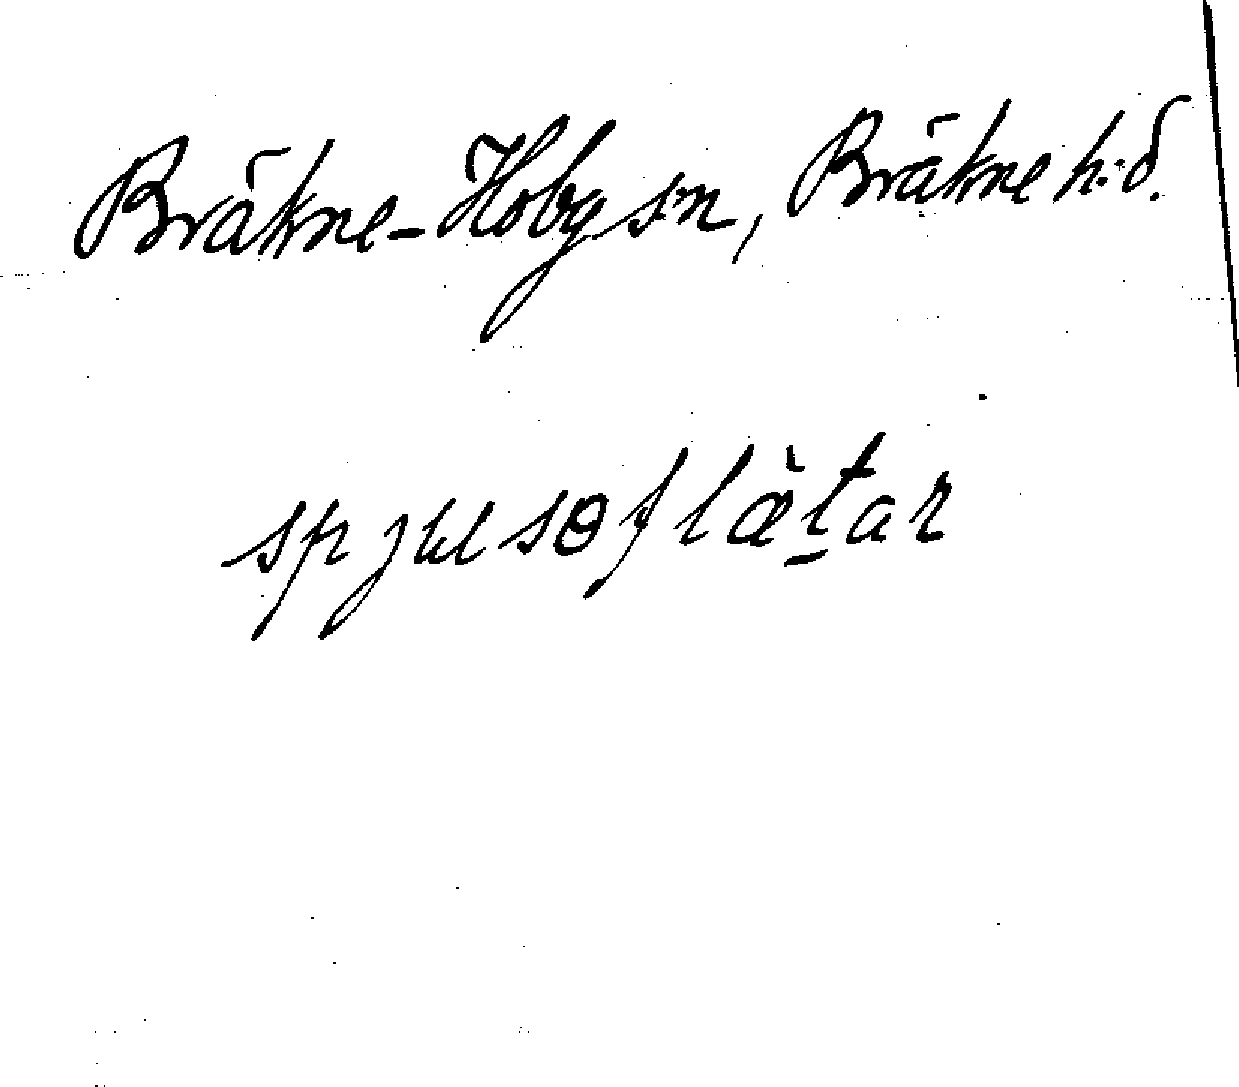 Bräkne-Hoby s:n, Bräkne h:d.
spjutsɵflætar